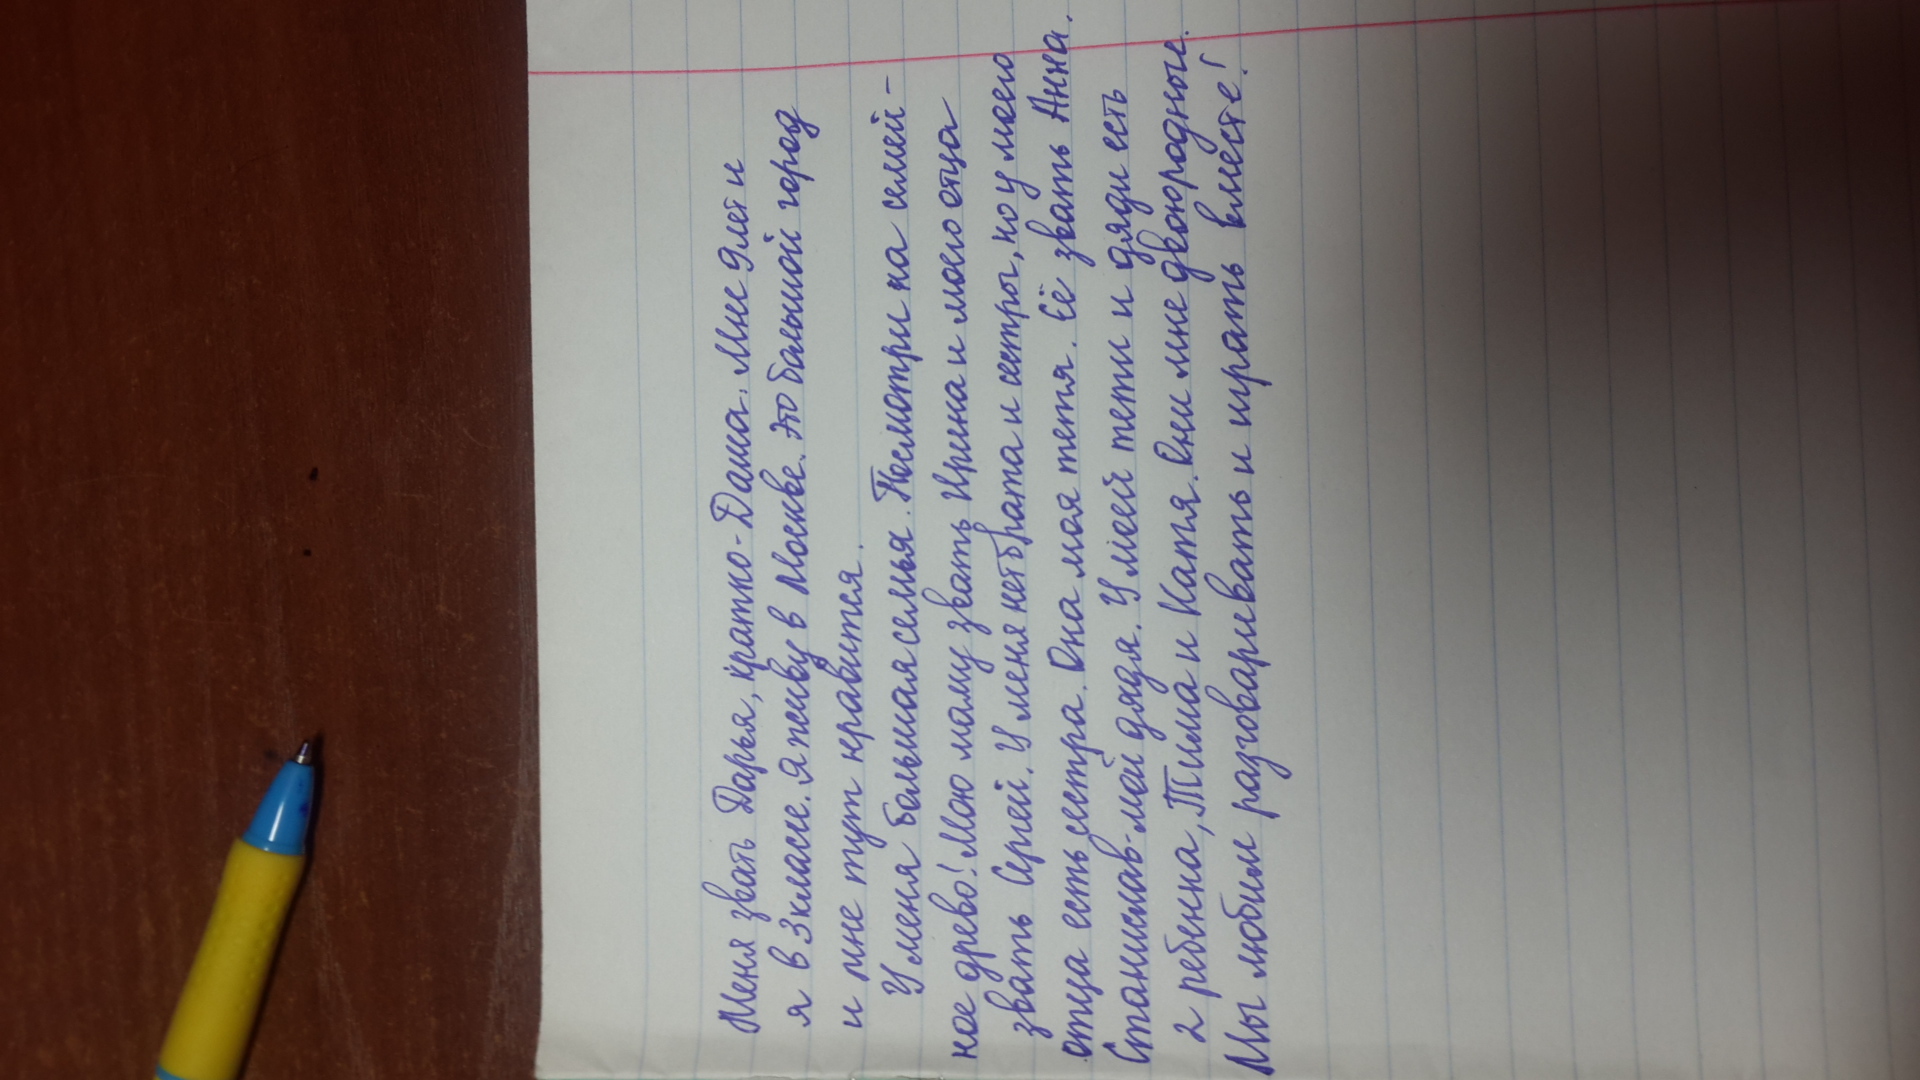 Меня звать Дарья, кратко - Даша. Мне 9 лет и
я в 3 классе. Я живу в Москве. Это большой город
и мне тут нравится.
У меня большая семья. Посмотри на семей-
ное древо! Мою маму звать Ирина и моего отца
звать Сергей. У меня нет брата и сестры, но у моего
отца есть сестра. Она моя тетя. Её звать Анна.
Станислав - мой дядя. У моей тети и дяди есть
2 ребенка, Тима и Катя. Они мне двоюродные.
Мы любим разговаривать и играть вместе!